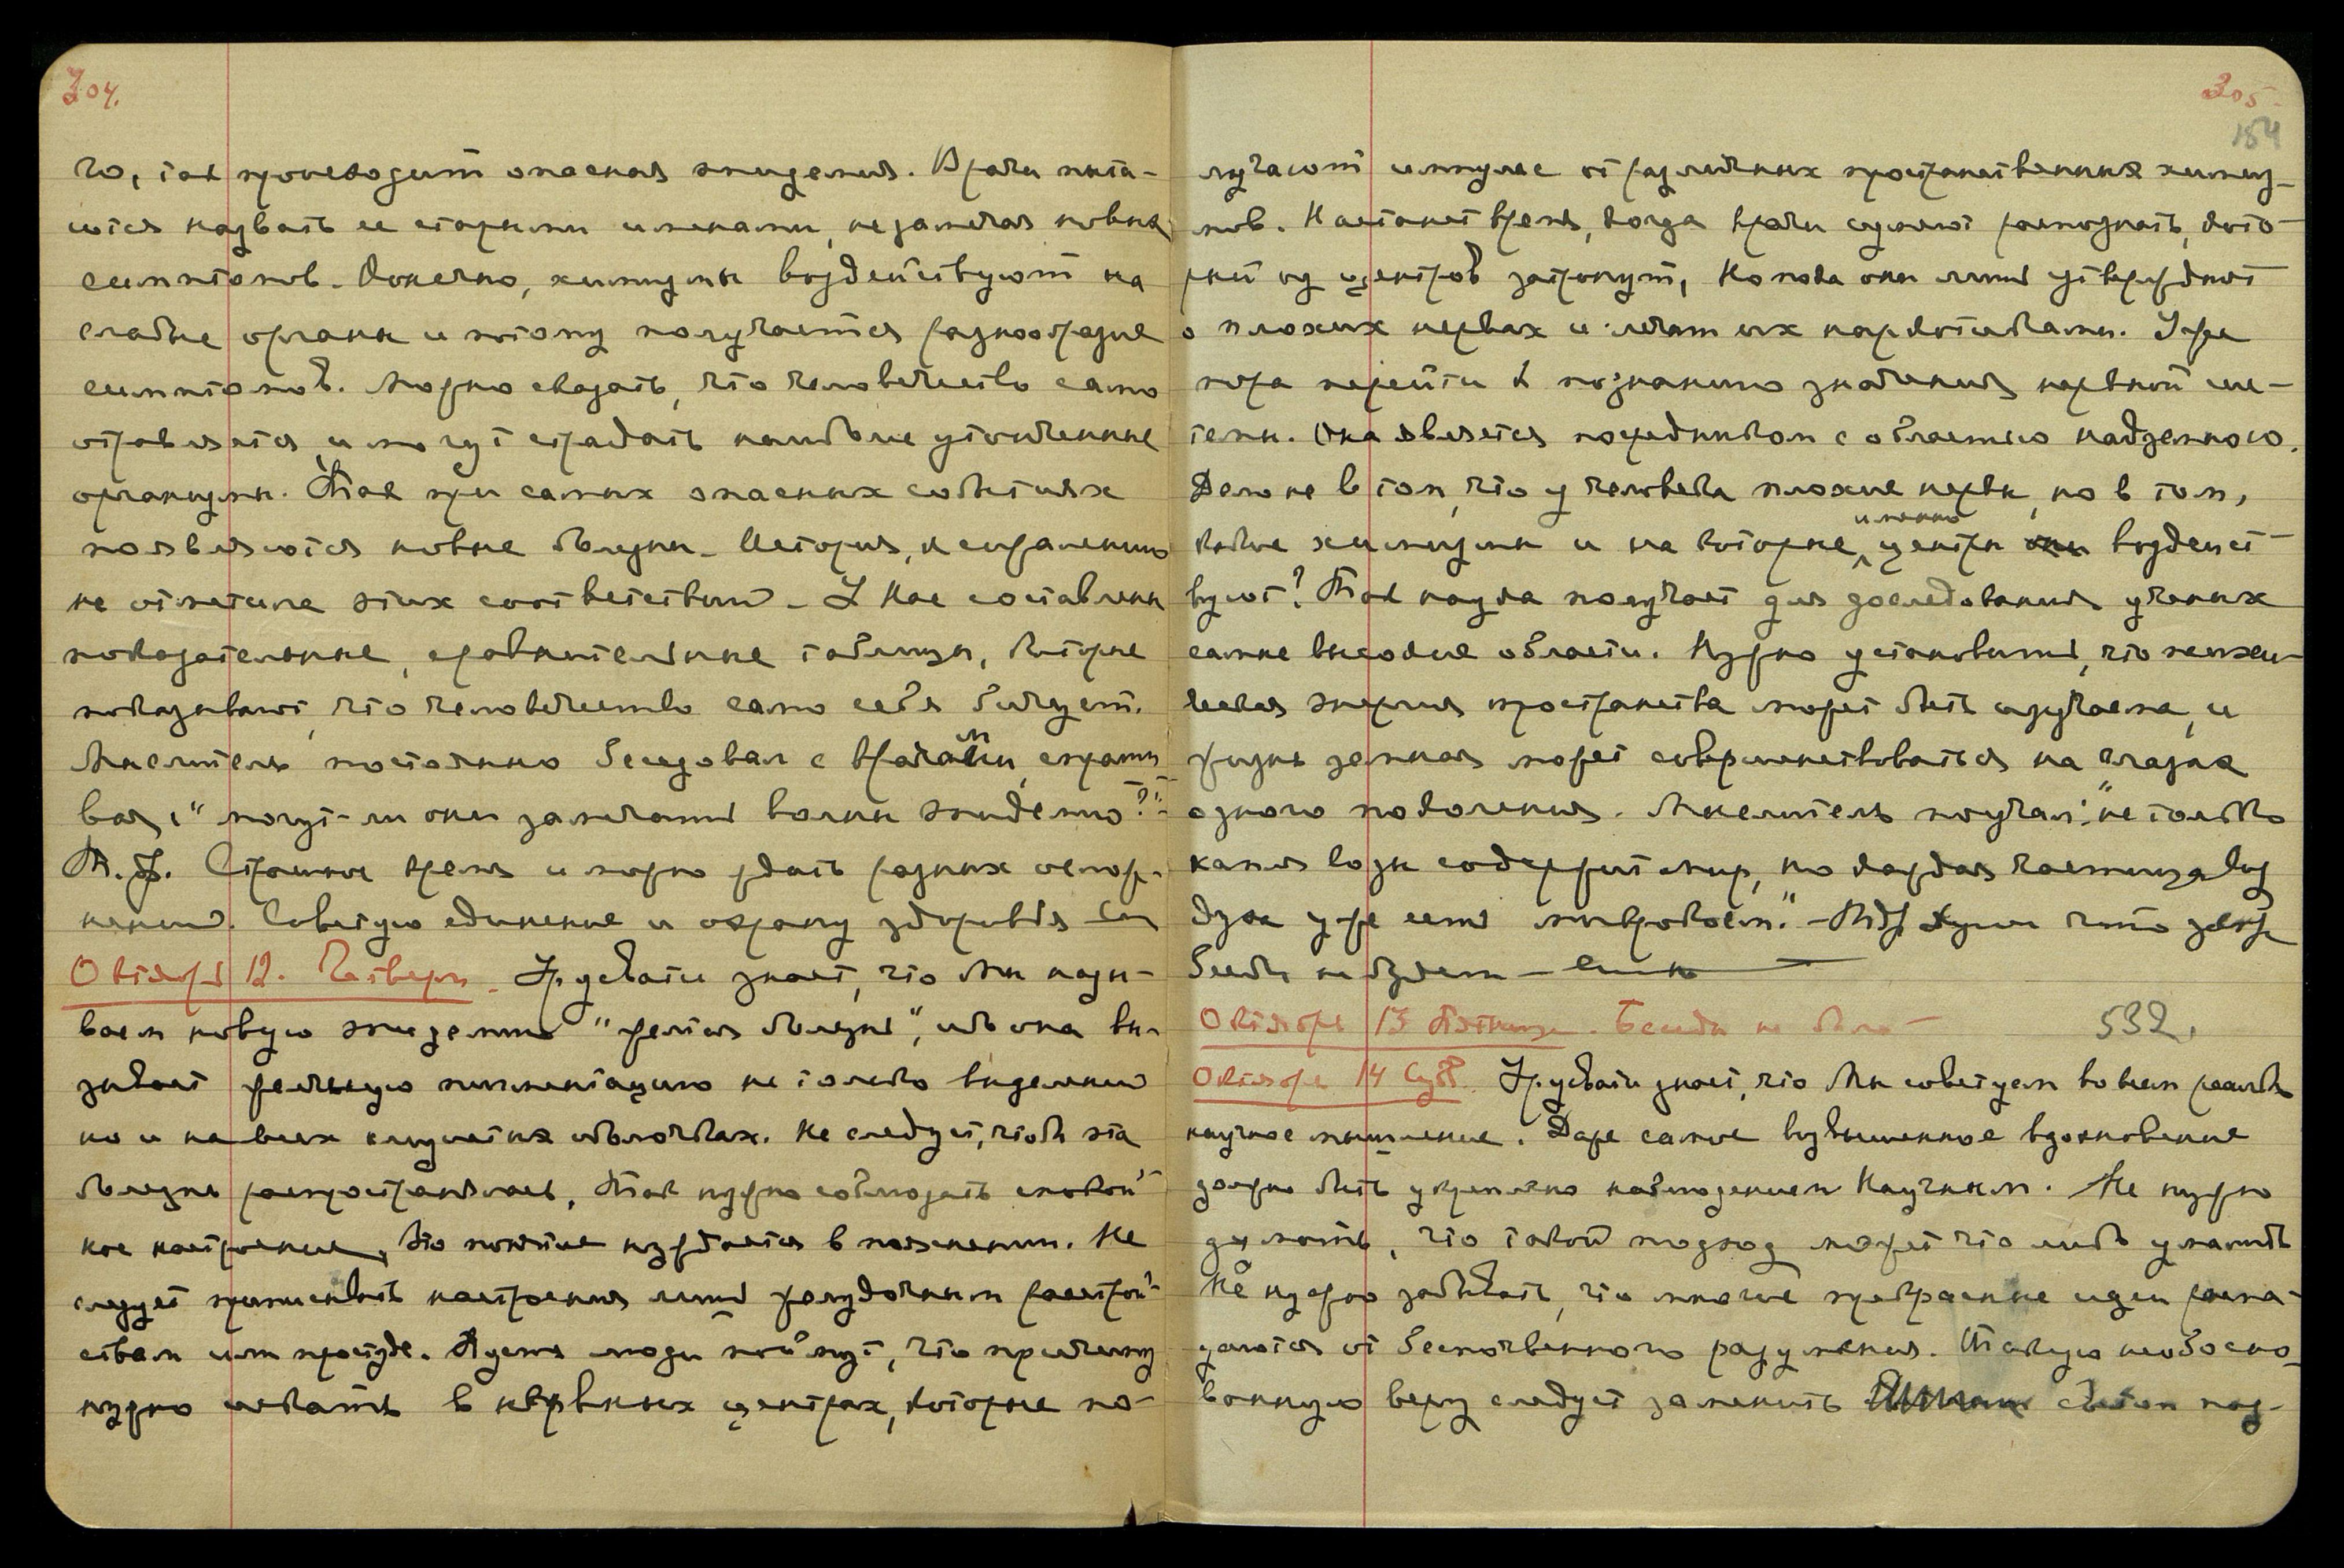 304.
го, так проиеводит опасная эпидемия. Врачи пыта-
ются назвать ее старыми именами, не замечая новых
симптомов. Конечно, химизмы воздействуют на
слабые органы и потому получается разнообразие
симптомов. Можно сказать, что человечество само
отравляется и могут страдать наиболее утонченные
организмы. Так при самых опасных событиях
появляются новые болезни. История, к сожалению
не отметила этих соответствий. У Нас составлены
показательные, сравнительные таблицы, которые
показывают, что человечество само себя бичует.
Мыслитель постоянно беседовал с врачами, спраши
вая, "могут-ли они замечать волны эпидемио?"
Страшное время и можно ждать разных ослож-
нений. Советую единение и охрану здоровья
Октября 12. Четверг. Урусвати знает, что Мы назы-
ваем новую эпидемию "желтая болезнь", ибо она вы-
зывает желтую пигментацию не только выделений
но и на всех слизистых оболочках. Не следует, чтобы эта
болезнь распространялась, Так нужно соблюдать спокой-
ное настроение, Это понятие нуждается в пояснении. Не
следует приписывать настроения лишь желудочным расстрой-
ствам или простуде. Пусть люди поймут, что причину
нужно искать в нервных центрах, которые по-
305.
154
лучают импульс от различных пространственных химиз-
мов. Настанет время, когда врачи сумеют распознать, кото-
рый из центров затронут, Но пока они лишь утверждают
о плохих нервах и лечат их наркотиками. Уже
пора перейти к познанию значения нервной сис-
темы. Она является посредником с областью надземного.
Дело не в том, что у человека плохие нервы, но в том,
именно
какие химизмы и на которые центры они воздейст-
вуют? Так наука получает для дослeдования ученых
самые высокие области. Нужно установить, что психи-
ческая энергия пространства может быть изучаема, и
жизнь земная может совершенствоваться на глазах
одного поколения. Мыслитель поучал: "не только
капля воды содержит мир, но каждая частица воз
духа уже есть микрокосм."
беседы не будет
Октября 13 Пятница. Беседы не было
532.
Октября 14 Суб. Урусвати знает, что Мы советуем во всем реаль
научное мышление. Даже самое возвышенное вдохновение
должно быть укреплено наблюдением Научным. Не нужно
думать, что такой подход может что либо умалить
Не нужно забывать, что многие прекрасные идеи распа-
даются от беспочвенного разумения. Такую необосно-
ванную веру следует заменить светом поз-